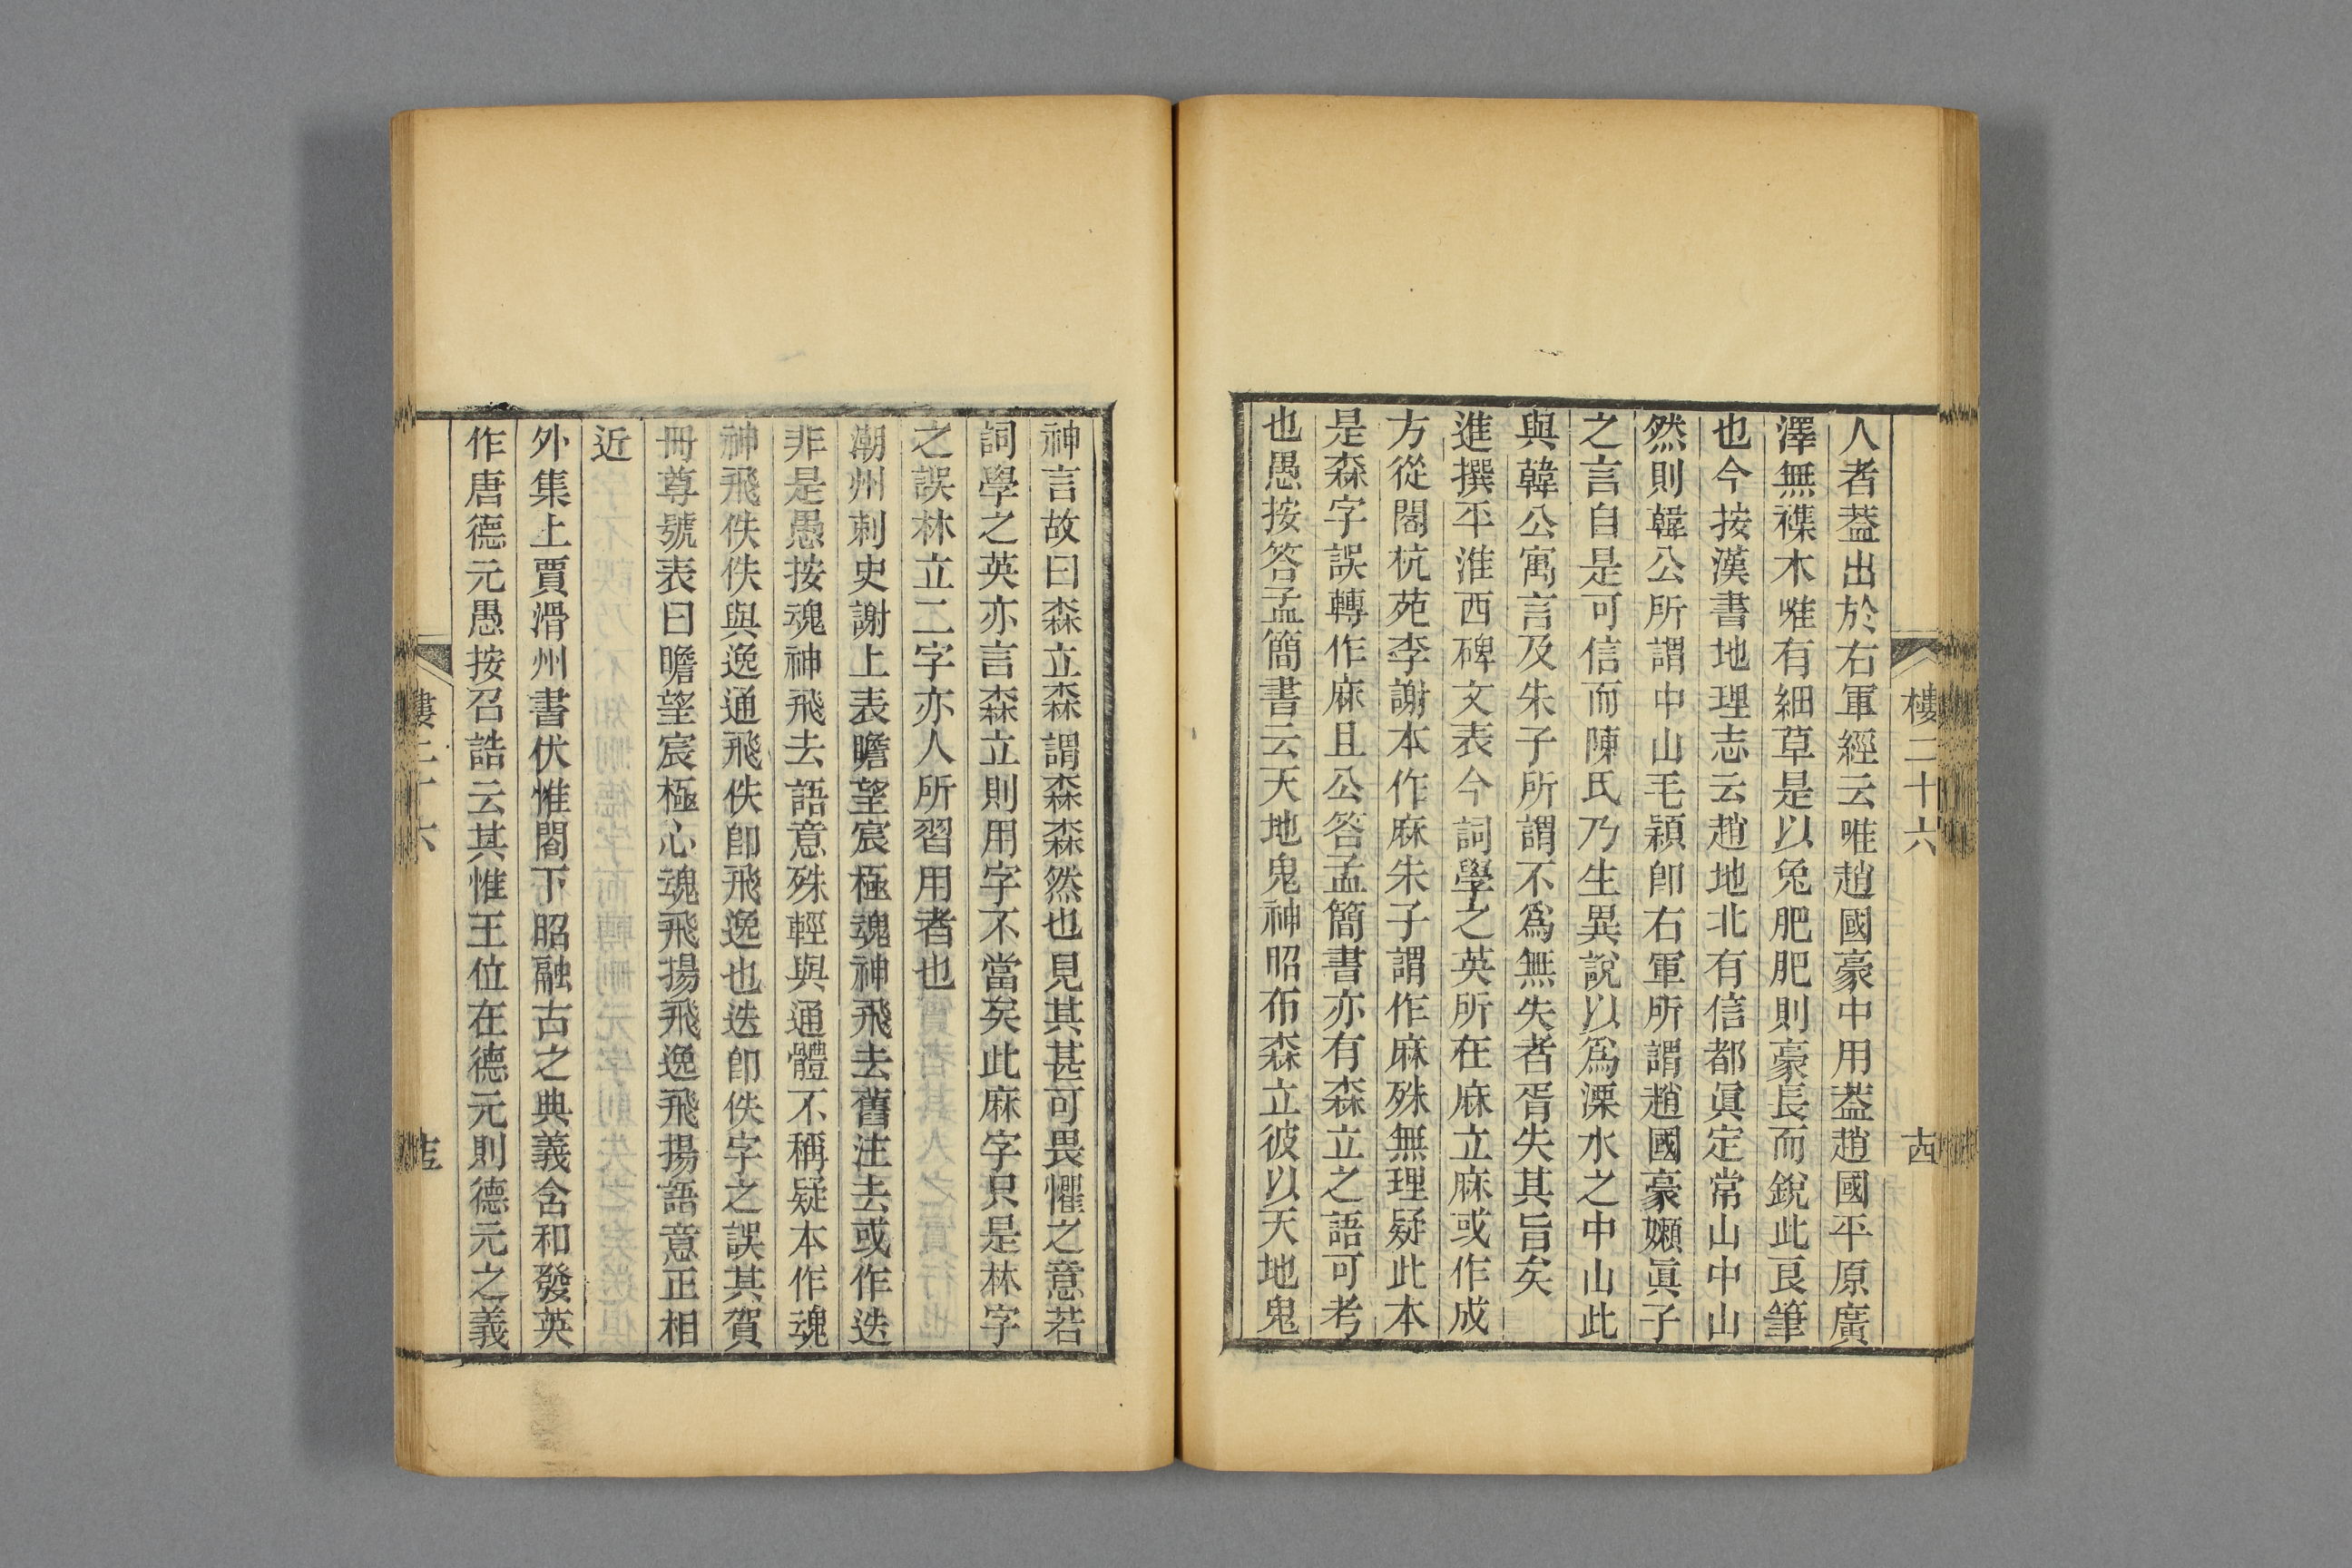 樓二十六
十四
人者葢出於右軍經云唯趙國豪中用葢趙國平原廣
澤無襍木唯有細草是以兔肥肥則豪長而銳此良筆
也今按漢書地理志云趙地北有信都眞定常山中山
然則韓公所謂中山毛穎卽右軍所謂趙國豪嬾眞子
之言自是可信而陳氏乃生異說以爲溧水之中山此
與韓公寓言及朱子所謂不爲無失者胥失其旨矣
進撰平淮西碑文表今詞學之英所在麻立麻或作成
方從閣杭苑李謝本作麻朱子謂作麻殊無理疑此本
是森字誤轉作麻且公答孟簡書亦有森立之語可考
也愚按答孟簡書云天地鬼神昭布森立彼以天地鬼
神言故曰森立森謂森森然也見其甚可畏懼之意若
詞學之英亦言森立則用字不當矣此麻字只是林字
之誤林立二字亦人所習用者也
潮州刺史謝上表瞻望宸極魂神飛去舊注去或作迭
非是愚按魂神飛去語意殊輕與通體不稱疑本作魂
神飛佚佚與逸通飛佚卽飛逸也迭卽佚字之誤其賀
冊尊號表曰瞻望宸極心魂飛揚飛逸飛揚語意正相
近
外集上賈滑州書伏惟閣下昭融古之典義含和發英
作唐德元愚按召誥云其惟王位在德元則德元之義
樓二十六